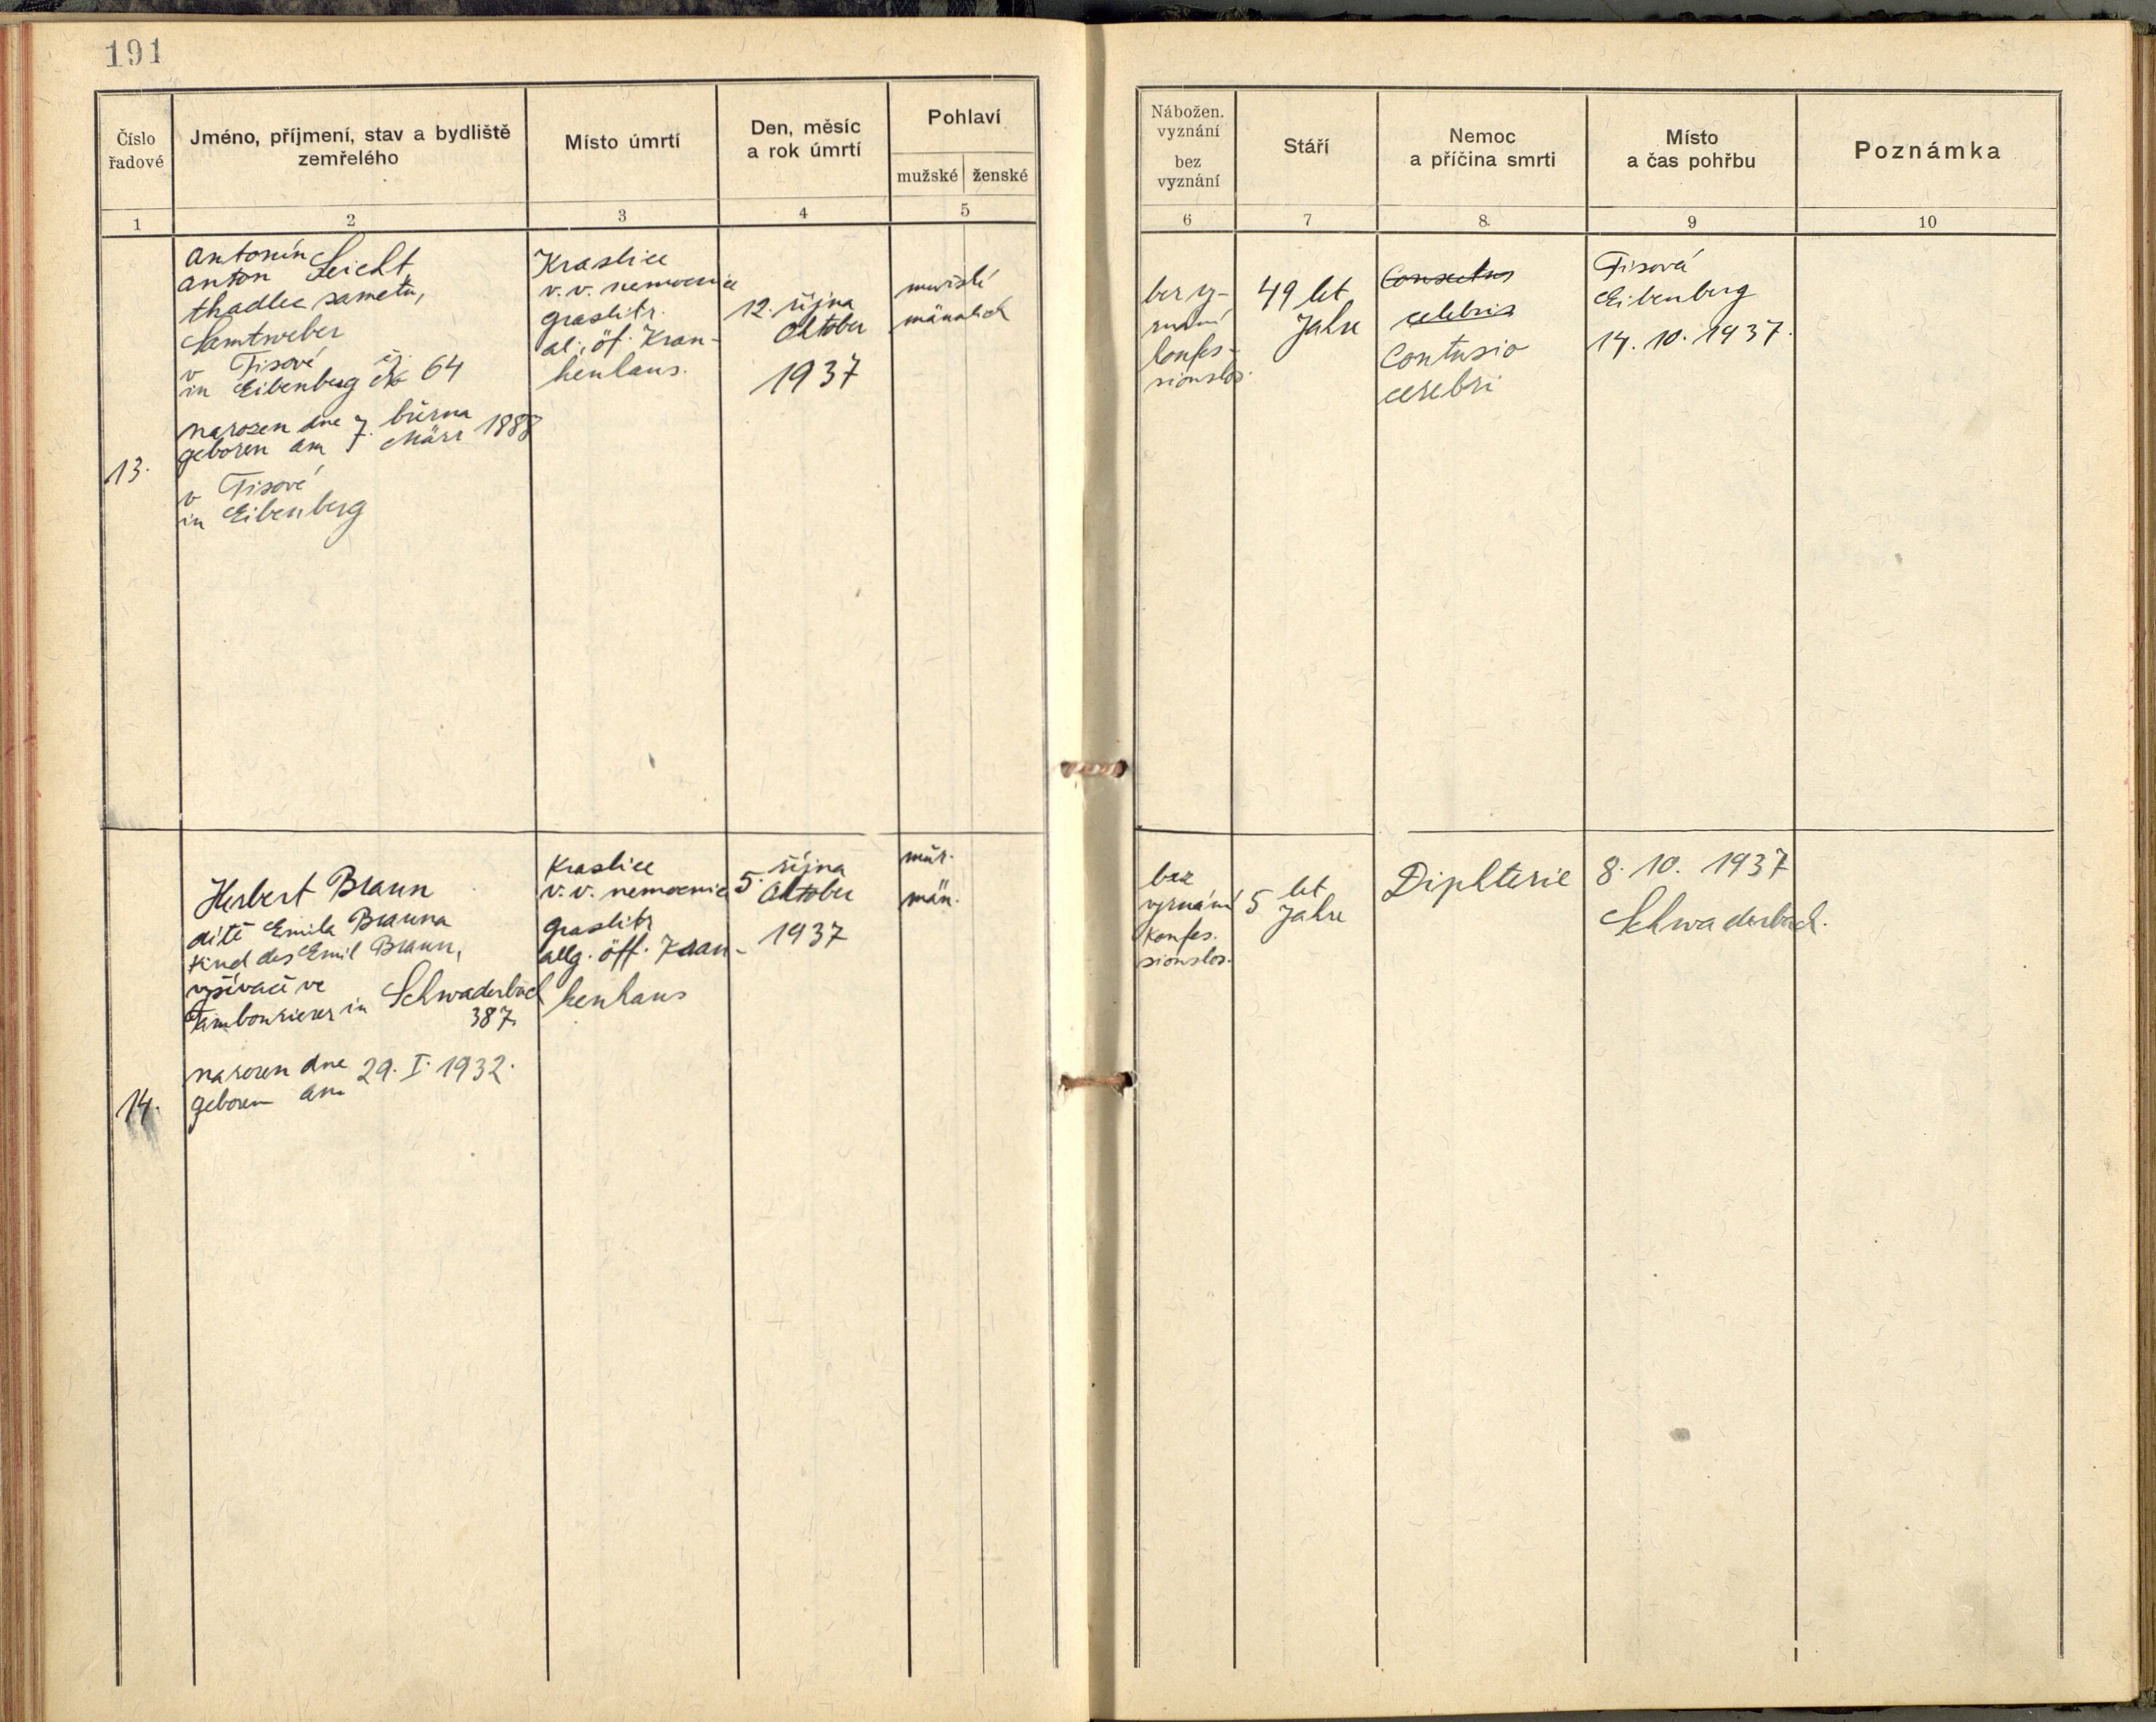 191
Číslo
řadové
Jméno, příjmení, stav a bydliště
zemřelého
Místo úmrtí
Den, měsíc
a rok úmrtí
Pohlaví
mužské
ženské
1
2
3
4
5
Nábožen.
vyznání
bez
vyznání
Stáří
Nemoc
a příčina smrti
Místo
a čas pohřbu
Poznámka
6
7
8.
9
10
13.
Antonín
Anton Leicht,
tkadlec sametu,
Samtweber
v Tisové čj.
in Eibenberg 64
narozen dne 7. března
geboren am 7. März 1888
v Tisové
in Eibenberg
Kraslice
v. v. nemocnice
Graslitz.
al. öf. Kran-
kenhaus.
12. října
Oktober
1937
mužské
männlich
bez vy-
znání
konfes-
sionslos.
49 let
Jahre
Contusio
cerebri
Tisová
Eibenberg
14. 10. 1937.
14.
Herbert Braun
dítě Emila Brauna
Kind des Emil Braun,
vyšívači ve
Tambourierer in Schwaderbach
387.
narozen dne 29. I. 1932.
geboren am
Kraslice
v. v. nemocnice
Graslitz
allg. öff. Kran-
kenhaus
5. října
Oktober
1937
muž.
män.
bez
vyznání
Konfes.
sionslos.
5 let
Jahre
Diphterie
8. 10. 1937
Schwaderbach.